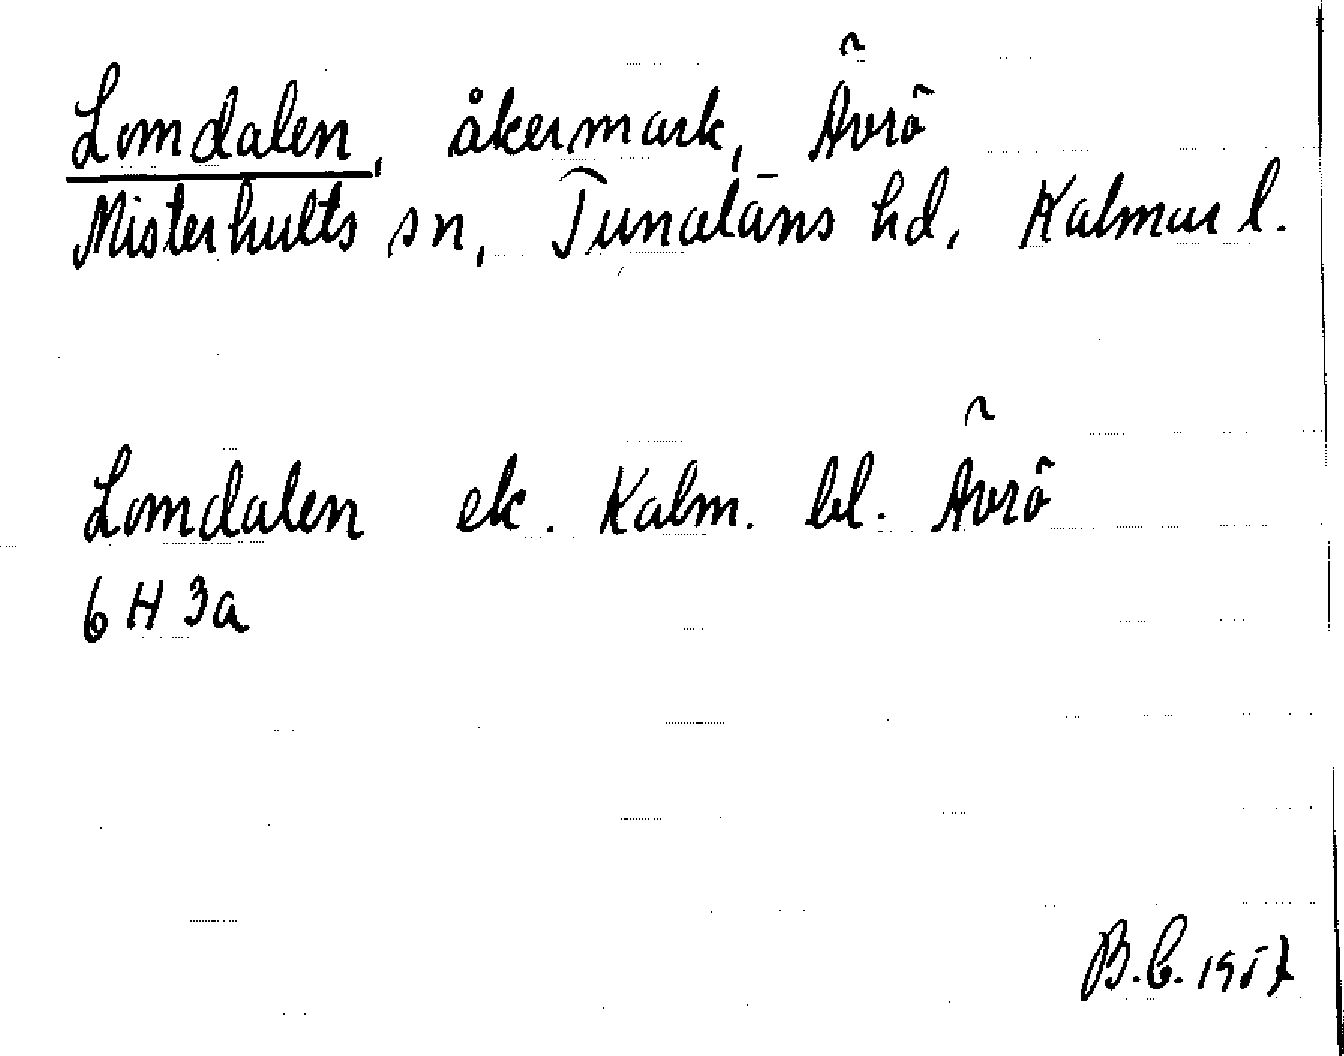 Lomdalen, åkermark, Ävrö
Misterhults sn, Tunaläns hd, Kalmar l.
Lomdalen ek. Kalm. bl. Ävrö
6 H 3a
B.C. 1957